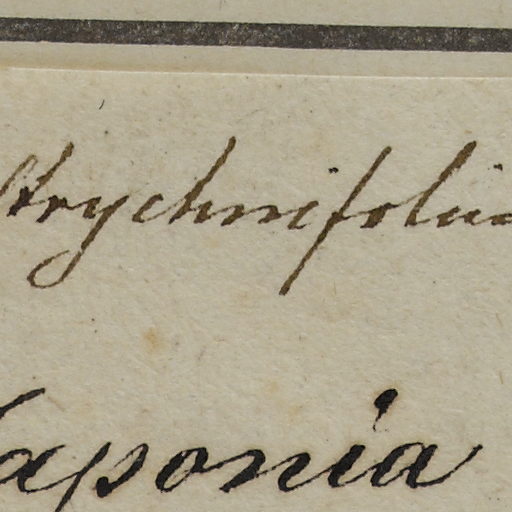 strychnifolia
Japonia